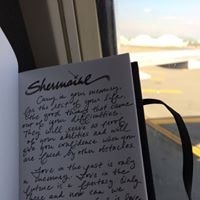 Shermaine
Carry in your memory,
for the rest of your life,
the good things that came
out of your difficulties.
They will serve as proof
of your abilities and will
give you confidence when you
are faced by other obstacles.
Love in the past is only
a memory. Love in the
future is a fantasy. Only
here and now can we